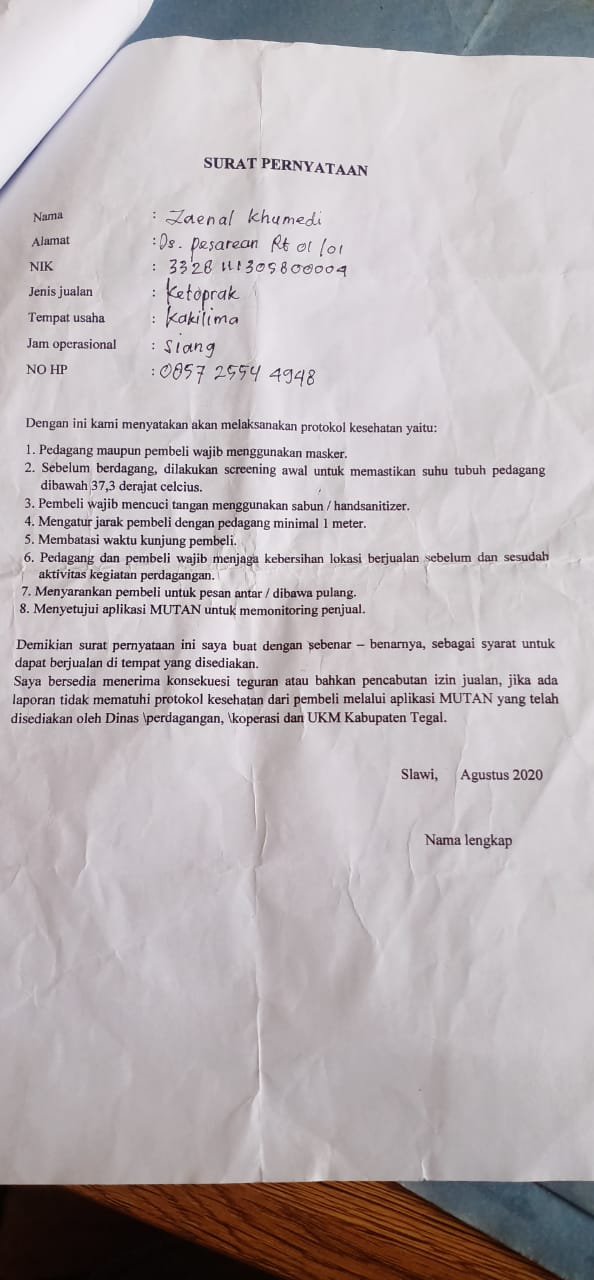 SURAT PERNYATAAN
Nama : Zaenal Khumedi
Alamat : Ds. pesarean Rt 01/01
NIK : 3328 111305800004
Jenis jualan : Ketoprak
Tempat usaha : Kakilima
Jam operasional : Siang
NO HP : 0857 2554 4948
Dengan ini kami menyatakan akan melaksanakan protokol kesehatan yaitu:
1. Pedagang maupun pembeli wajib menggunakan masker.
2. Sebelum berdagang, dilakukan screening awal untuk memastikan suhu tubuh pedagang
dibawah 37,3 derajat celcius.
3. Pembeli wajib mencuci tangan menggunakan sabun / handsanitizer.
4. Mengatur jarak pembeli dengan pedagang minimal 1 meter.
5. Membatasi waktu kunjung pembeli.
6. Pedagang dan pembeli wajib menjaga kebersihan lokasi berjualan sebelum dan sesudah
aktivitas kegiatan perdagangan.
7. Menyarankan pembeli untuk pesan antar / dibawa pulang.
8. Menyetujui aplikasi MUTAN untuk memonitoring penjual.
Demikian surat pernyataan ini saya buat dengan sebenar – benarnya, sebagai syarat untuk
dapat berjualan di tempat yang disediakan.
Saya bersedia menerima konsekuesi teguran atau bahkan pencabutan izin jualan, jika ada
laporan tidak mematuhi protokol kesehatan dari pembeli melalui aplikasi MUTAN yang telah
disediakan oleh Dinas \perdagangan, \koperasi dan UKM Kabupaten Tegal.
Slawi, Agustus 2020
Nama lengkap